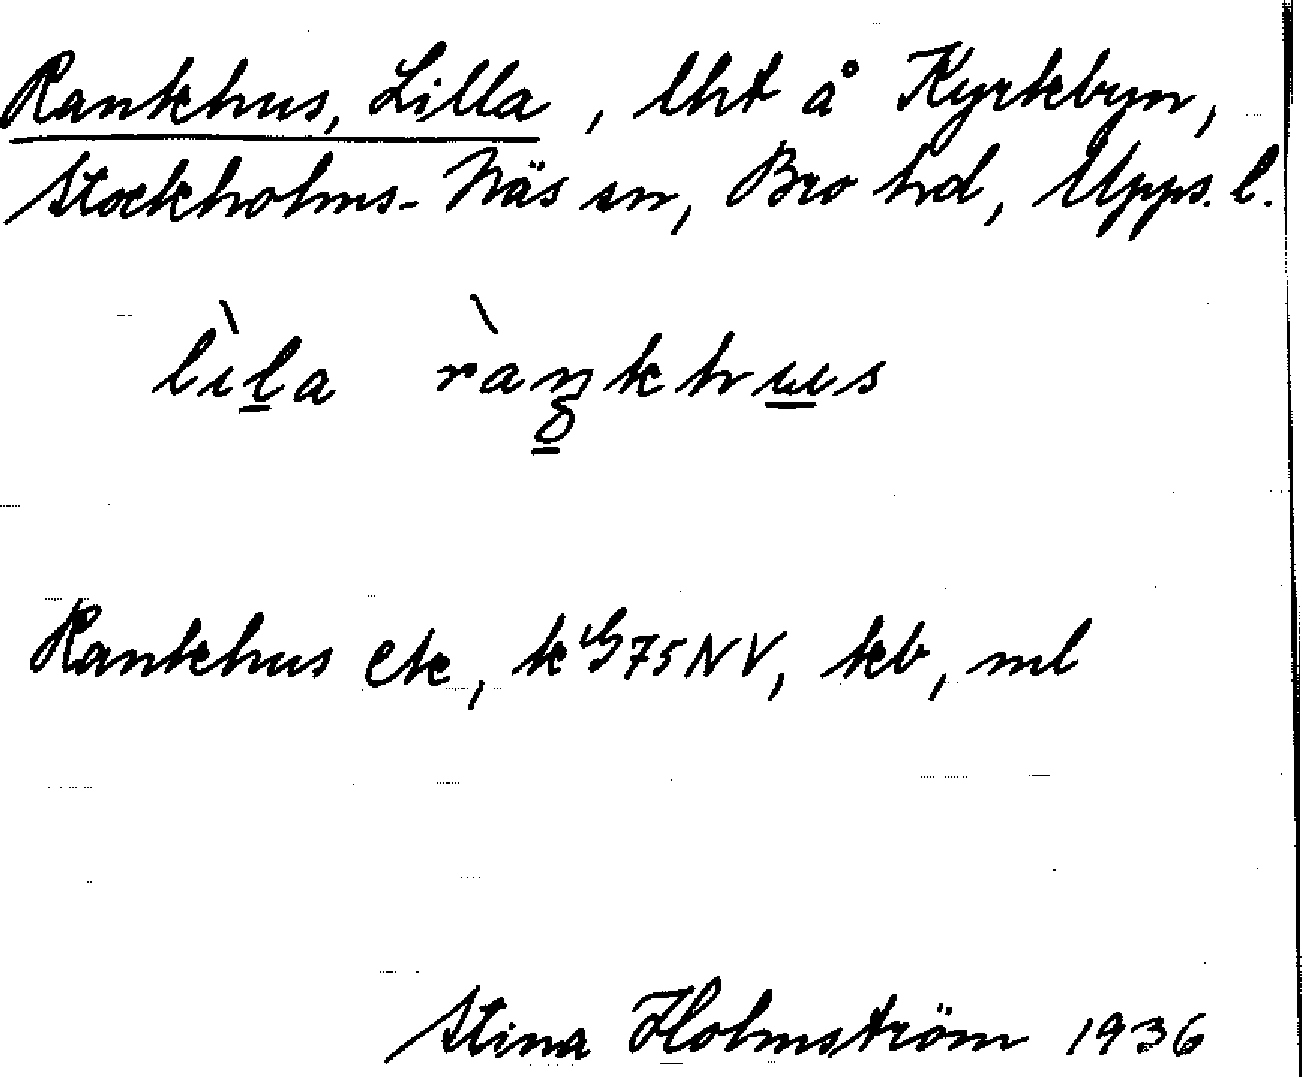 Rankhus, Lilla, lht å Kyrkbyn,
Stockholms-Näs sn, Bro hd, Upps. l.
lìla ràŋkhus
Rankhus ek, k 75 NV, kb, ml
Stina Holmström 1936